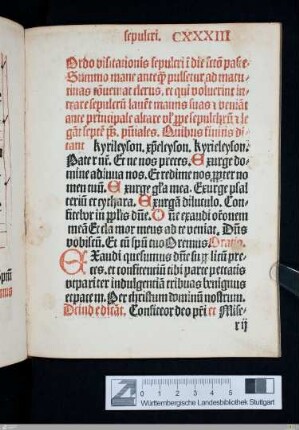 sepulcri. CXXXIII
Ordo visitationis sepulcri ī die sctō pasce
Summo mane anteqͣ pulsetur ad matu⸗
tinas ꝯveniat clerus, et qui voluerint in⸗
trare sepulcrū lavēt manus suas ⁊ veniāt
ante principale altare vel ꝓpe sepulchrū ⁊ le⸗
gāt septē ps. pn̄iales. Quibus finitis di⸗
cant kyrieleyson, xp̄eleyson. Kyrieleyson.
Pater nr̄. Et ne nos p̄ces. Exurge do⸗
mine adiuva nos. Et redime nos ꝓpter no
men tuū. Exurge gl̄ia mea. Exurge psal
teriū et cythara. Exurgā diluculo. Con
fitebor in pp̄lis dn̄e. Dn̄e exaudi or̄onem
meā Et cla mor meus ad te veniat. Dn̄s
vobiscū. Et cū sp̄u tuo Oremus Oratio.
EXaudi quesumus dn̄e supplicū pre⸗
ces. et confitentiū tibi parce peccatis
ut pariter indulgentiā tribuas benignus
et pacem. Per christum dominū nostrum.
Deinde dicāt. Confiteor deo pr̄i et Mise⸗
r ij
0 1 2 3 4 5
Württembergische Landesbibliothek Stuttgart